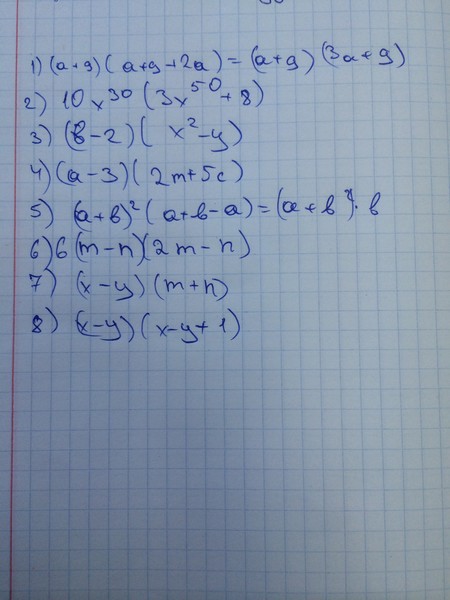 1) (a+9)(a+9+2a) = (a+9)(3a+9)
2) 10x³⁰(3x⁵⁰+8)
3) (в-2)(x²-y)
4) (a-3)(2m+5c)
5) (a+в)²(a+в-a)=(a+в)²·в
6) 6(m-n)(2m-n)
7) (x-y)(m+n)
8) (x-y)(x-y+1)